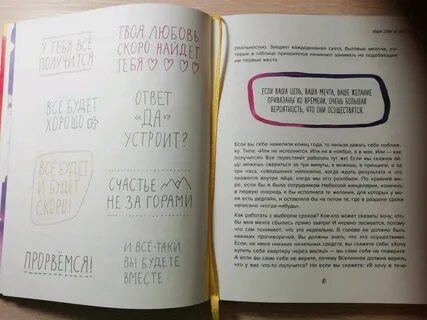 У ТЕБЯ ВСЁ
ПОЛУЧИТСЯ
ТВОЯ ЛЮБОВЬ
СКОРО НАЙДЕТ
ТЕБЯ ♡ ♡ ♡ ♡
ВСЁ БУДЕТ
ХОРОШО
ОТВЕТ
«ДА»
УСТРОИТ?
ВСЁ БУДЕТ
И БУДЕТ
СКОРО!
СЧАСТЬЕ
НЕ ЗА ГОРАМИ
ПРОРВЁМСЯ!
И ВСЁ-ТАКИ
ВЫ БУДЕТЕ
ВМЕСТЕ
реальностью. Заедает каждодневная суета, бытовые мелочи, ко-
торые в таблице приоритетов начинают занимать не подобающие
им первые места.
ЕСЛИ ВАША ЦЕЛЬ, ВАША МЕЧТА, ВАШЕ ЖЕЛАНИЕ
ПРИВЯЗАНЫ КО ВРЕМЕНИ, ОЧЕНЬ БОЛЬШАЯ
ВЕРОЯТНОСТЬ, ЧТО ОНИ ОСУЩЕСТВЯТСЯ.
Если вы себе наметили конец года, то нельзя давать себе поблаж-
ку. Типа: «Или не исполнится. Или не в ноябре, а в мае. Или — как
получится!» Все перестанет работать тут же! Если мы скажем яй-
цу: можешь свариться за три минуты, а можешь — в третьем часу,
три часа, совершенно непонятно, когда вести
внутри яйца, когда мы его разобьем. По крайней ме-
ре, если бы я был сотрудником Небесной канцелярии, конечно,
в первую очередь я бы исполнял те желания, для которых у меня
есть дедлайн, и оставлял бы на потом те, на которых у меня в рас-
писании записано «когда-нибудь».
Как работать с выбором сроков? Кое-кто может сказать: хочу,
чтобы мне на голову упал миллион. И мирно заснет, потому что
сам понимает, что это нереально. В голове не должно быть
никаких противоречий. Вы должны знать, что это осуществимо.
Если, не имея никаких начальных средств, вы скажете себе: «Хочу
купить себе квартиру через месяц» — вы сами себе не поверите.
А если вы сами себе не верите, почему Вселенное должна верить,
что у вас что-то получится? Но если вы скажете: «Я хочу в тече-